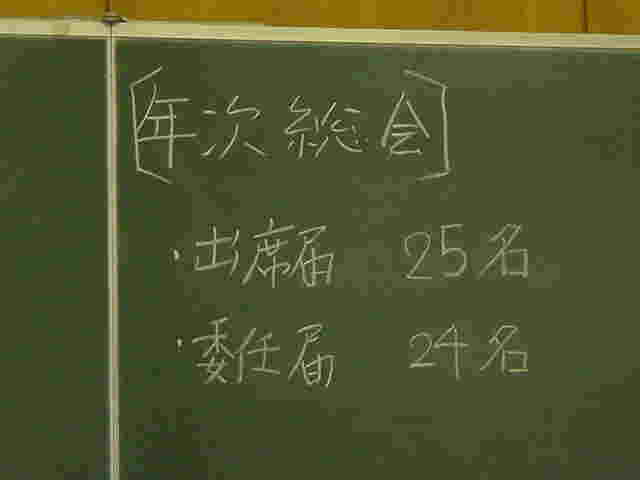 [年次総会]
・出席届 25名
・委任届 24名